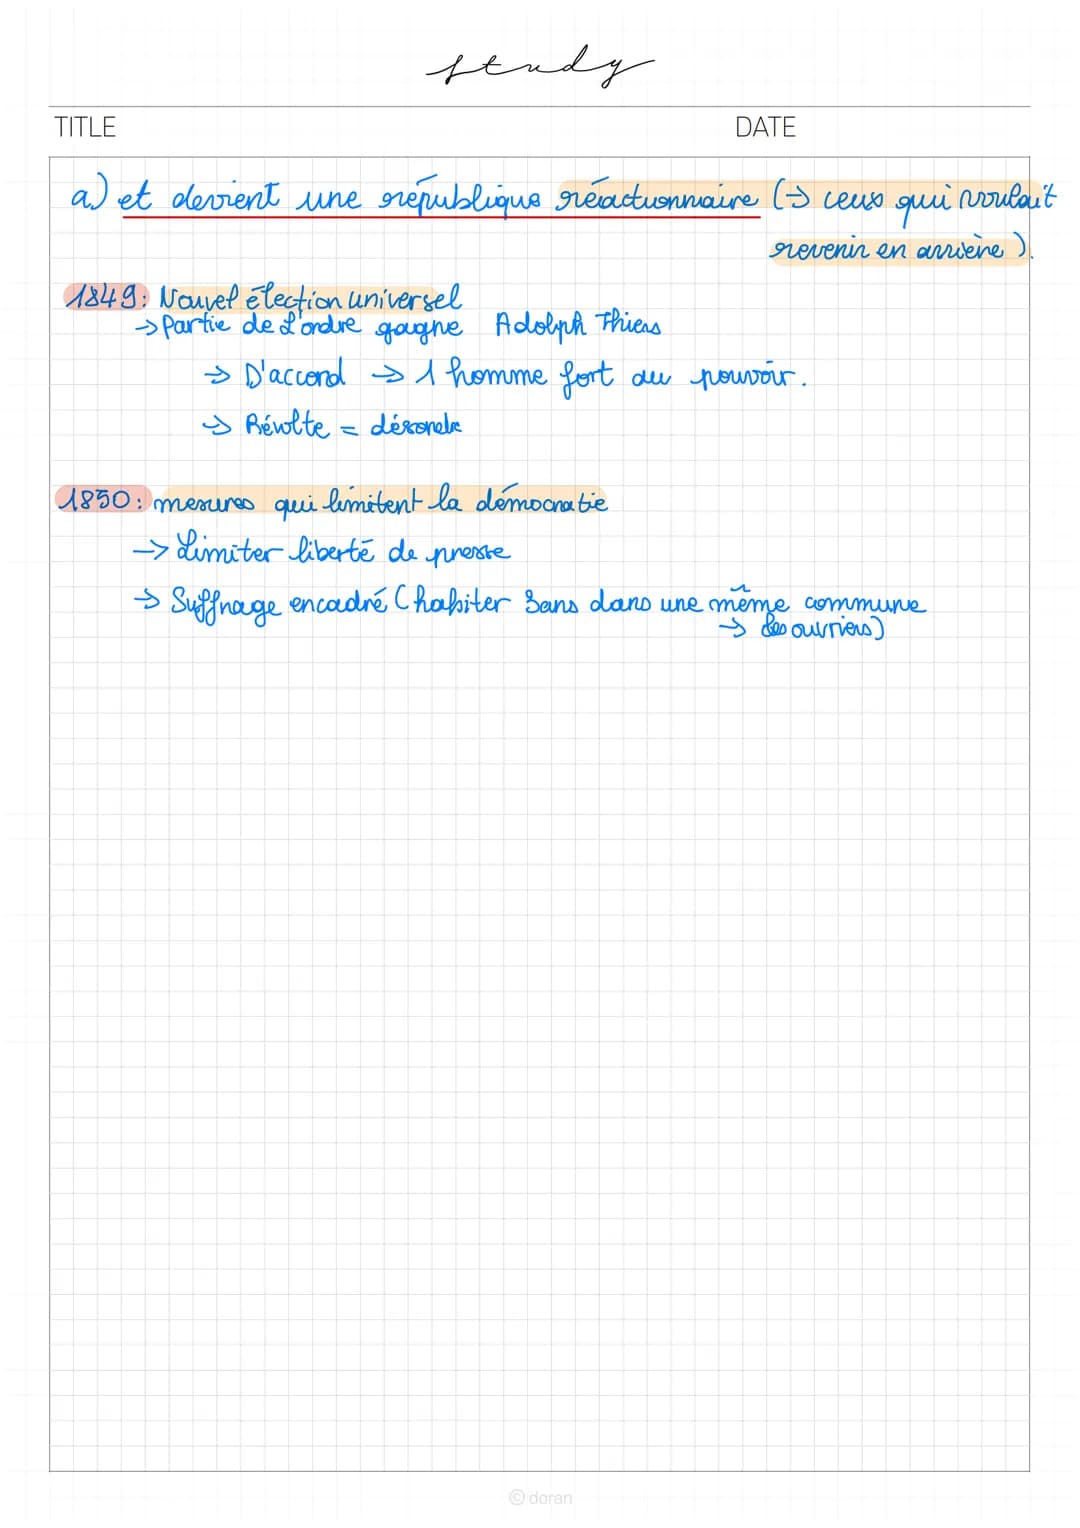 study
TITLE DATE
a) et devient une république réactionnaire (→ ceux qui voulait
revenir en arrière).
1849: Nouvel élection universel
→ Partie de L'ordre gagne Adolph Thiers
→ D'accord → 1 homme fort au pouvoir.
→ Révolte = désordre
1850: mesures qui limitent la démocratie
→ Limiter liberté de presse
→ Suffrage encadré (habiter 3ans dans une même commune
→ les ouvriers)
© doran